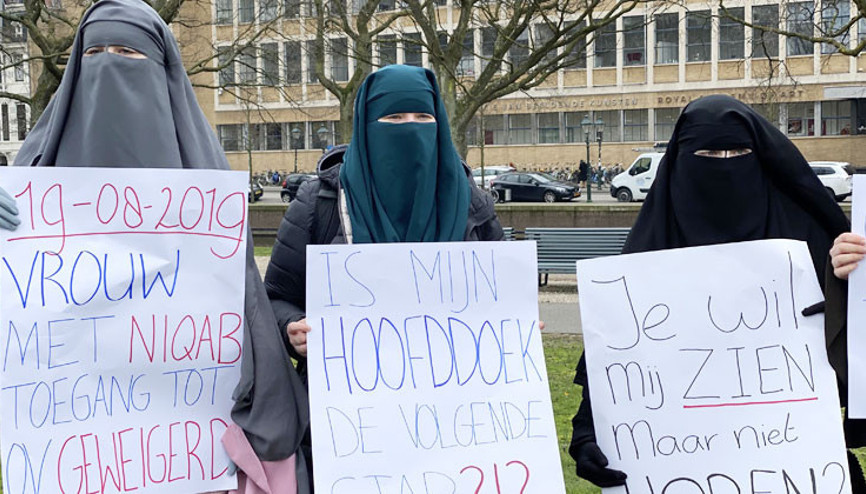 19-08-2019
VROUW
MET NIQAB
TOEGANG TOT
OV GEWEIGERD
IS MIJN
HOOFDDOEK
DE VOLGENDE
STAP?!?
Je wil
mij ZIEN
Maar niet
HOREN?
ROYAL
ART